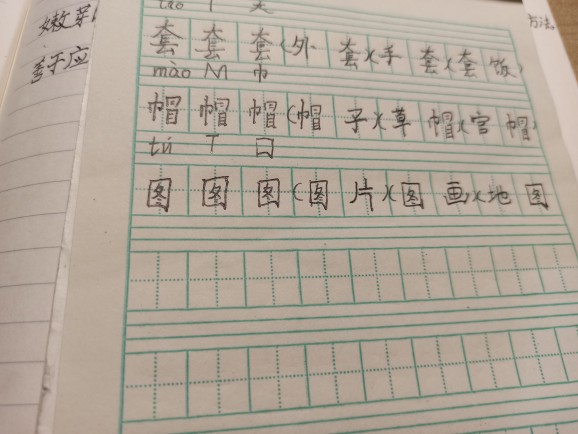 tào T 大
套套套(外套)(手套)(套饭)
mào M 巾
帽帽帽(帽子)(草帽)(官帽)
tú T 囗
图图图(图片)(图画)(地图
嫩芽
方法